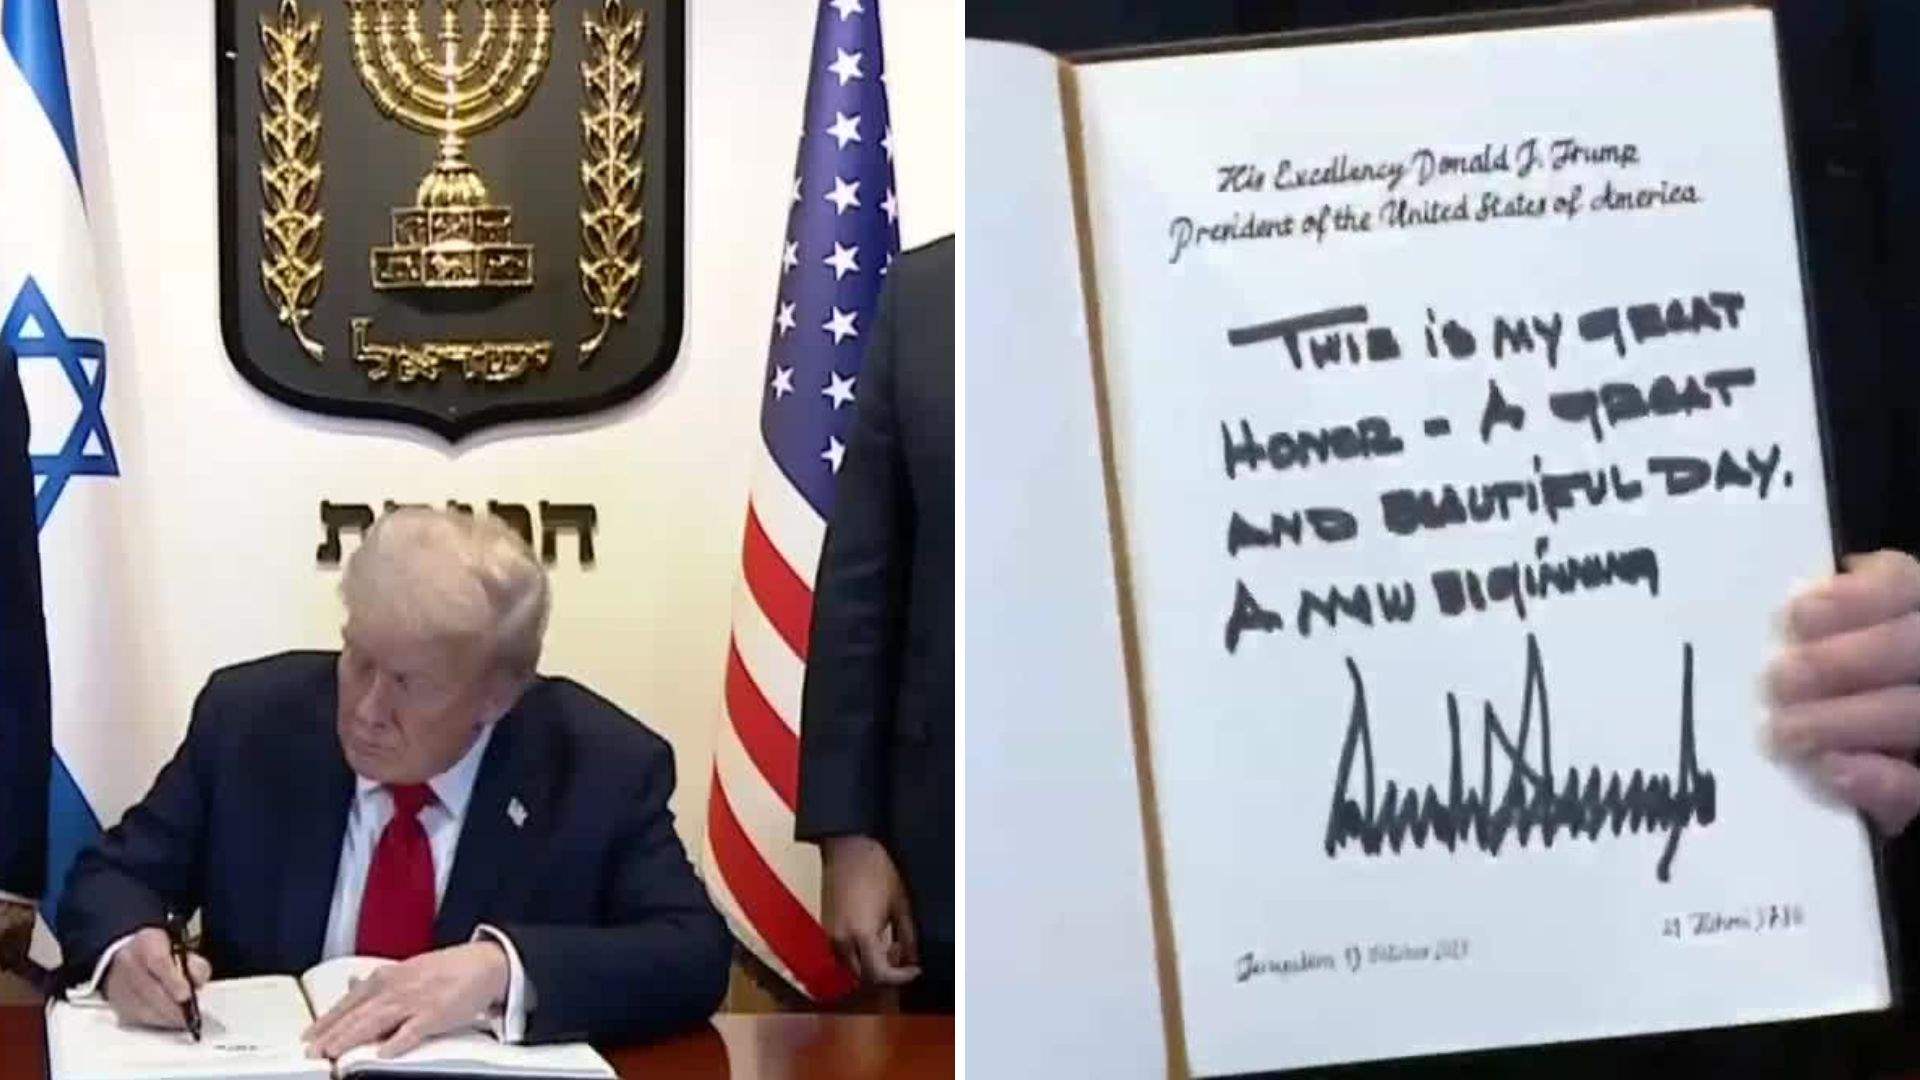 ישראל
His Excellency Donald J. Trump
President of the United States of America
THIS IS MY GREAT
HONOR - A GREAT
AND BEAUTIFUL DAY.
A NEW BEGINNING
Jerusalem 13 October
21 Tishrei